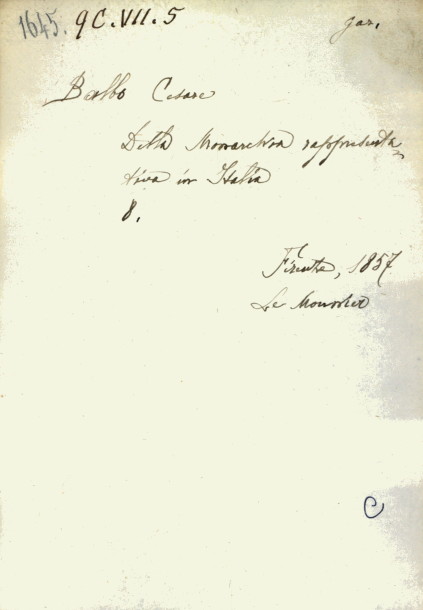 1645. 9C.VII.5 gaz.
Balbo Cesare
Della Monarchia rappresenta-
tiva in Italia
8.
Firenze, 1857
Le Monnier
C